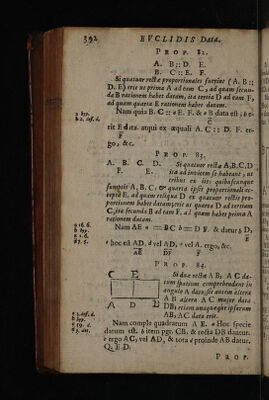 392 EVCLIDIS Data.
PROP. 82.
A. B :: D. E.
B. C :: E. F.
Si quatuor rectæ proportionales fuerint ( A. B ::
D. E ) erit ut prima A ad eam C, ad quam secun-
da B rationem habet datam, ita tertia D ad eam F,
ad quam quarta E rationem habet datam.
Nam quia B. C :: E. F. & B data est; b e-
rit E data. atqui ex æquali A. C :: D. F. er-
go, &c.
PROP. 83.
A. B. C. D. Si quatuor rectæ A,B,C,D
F. E. ita ad invicem se habeant, ut
tribus ex iis quibuscunque
sumptis A, B, C, & quarta ipsis proportionali ac-
cepta E, ad quam reliqua D ex quatuor rectis pro-
portionem habet datam; erit ut quarta D ad tertiam
C, ita secunda B ad eam F, ad quam habet prima A
rationem datam.
Nam AE = BC = D F. & datur D,
hoc est AD, d vel AD, vel A. ergo, &c.
PROP. 84.
C E
A D B
Si duæ rectæ AB, AC da-
tum spatium comprehendant in
angulo A dato; sit autem altera
AB altera AC major data
DB; etiam unaquæque ipsarum
AB, AC data erit.
Nam comple quadratum AE. Hoc specie
datum est. b item pgr. CB, & recta DB dantur.
ergo AC, vel AD, & tota proinde AB datur.
Q. E. D.
PROP.